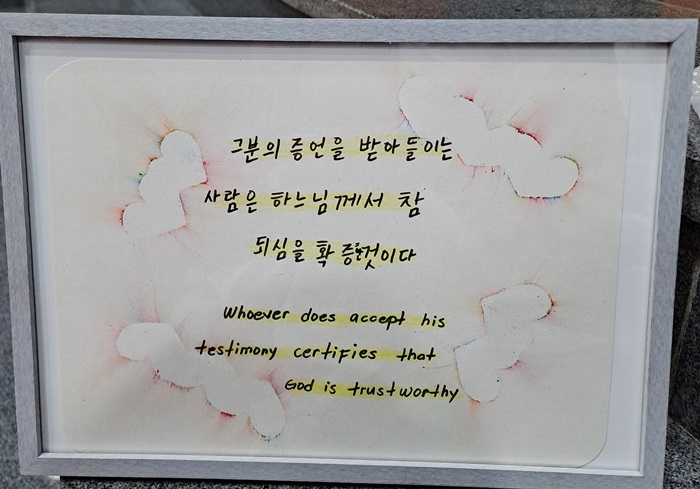 그분의 증언을 받아들이는
사람은 하느님께서 참
되심을 확증한것이다
Whoever does accept his
testimony certifies that
God is trustworthy